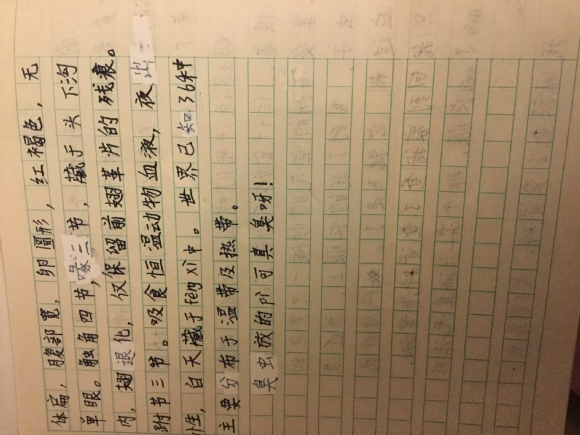 体扁，腹部宽，卵圆形，红褐色，无
单眼。触角四节，喙三节，藏于头下沟
内，翅退化，仅保留前翅革片的残痕。
跗节三节。吸食恒温动物血液，夜出
性，白天藏于fèng xì中。世界已知36种
主要分布于温带及热带。
臭虫放的pì可真臭呀！